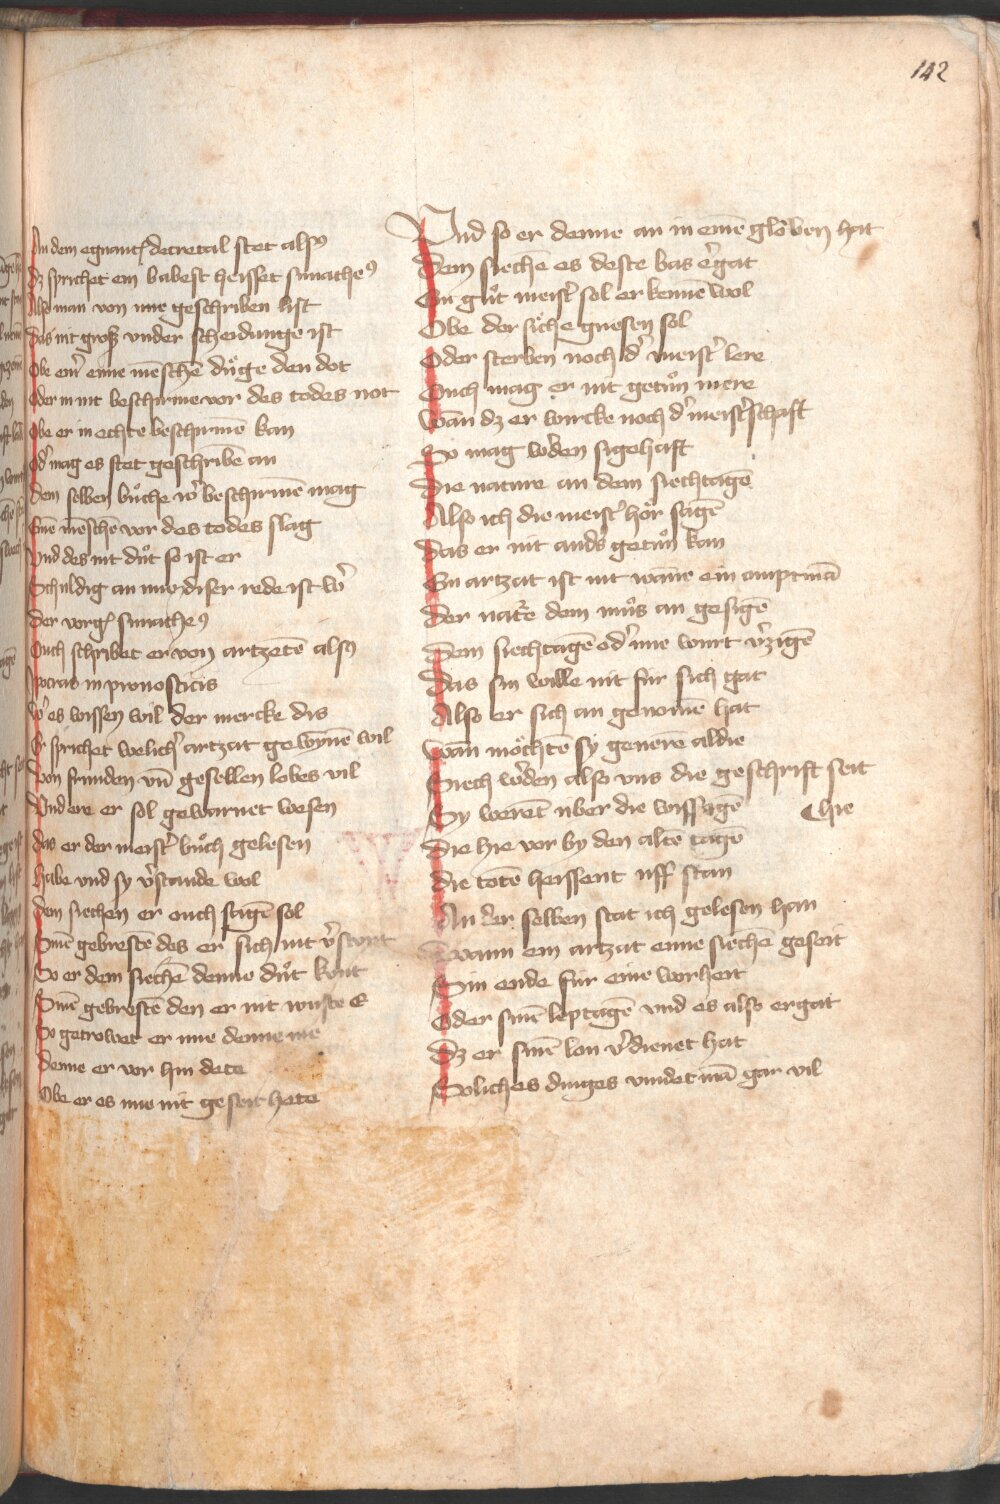 142
In dem egnant decretal stet alsꝰ
Dz sprichet ein babest heisset simatheꝰ
Also man von ime geschriben list
Das nit groß vnder scheidunge ist
Obe einͬ eine mēschē duͦge den dot
Oder in nit beschirme vor des todes not
Obe er in echte beschirmē kan
Odͬ mag es stet geschribē an
Dem selben buͦche wͬ beschirmē mag
Einē mēschē vor des todes slag
Vnd des nit duͦt so ist er
Schuldig an ime diser rede ist wͬ
Der vorgͬ simatheꝰ
Ouch schribet er von artzetē alsꝰ
Ypocras in pronosticis
Wͬ es wissen wil der mercke dis
Er sprichet welichͬ artzat gewynnē wil
Von frunden vn̄ gesellen lobes vil
Vnd ere er sol gewarnet wesen
Das er der meistͬ buͦch gelesen
Habe vnd sy vͬstande wol
Den siechen er ouch sagē sol
Sinē gebrestē des er sich nit vͬstont
So er dem siechē denne duͦt kont
Sinē gebrestē den er nit wuste E
So getrowet er ime denne me
Denne er vor hin dete
Obe er es ime nit geseit hete
Vnd so er denne an in einē gloͮben hat
Dem siechē es deste bas eͬgat
Ein guͦt meistͬ sol er kennē wol
Obe der siche gnesen sol
Oder sterben noch dͬ meistͬ lere
Ouch mag er nit getuͦn mere
Wan dz er wircke noch dͬ meistͬschaft
So mag wͬden sigehaft
Die nature an dem siechtagē
Also ich die meistͬ hoͤr sagē
Das er nit andͬs getuͦn kan
Ein artzat ist nit wāne ein amptmā
Der natͬe dem muͦs an gesigē
Dem siechtagē odͬ ime wurt vͬzigē
Das sin wille nit fur sich gat
Also er sich an genomē hat
Wan moͤchtē sy generē aldie
Siech wͬden also vns die geschrift seit
Sy werēt uber die wissagē
hie
Die hie vor by den altē tagē
Die totē heissent uff stan
An der selben stat ich gelesen han
Wann ein artzat eime siechē geseit
Sin ende fur eine worheit
Oder sinē leptagē vnd es also ergat
Dz er sinē lon vͬdienet hat
Soliches dinges vindet mā gar vil